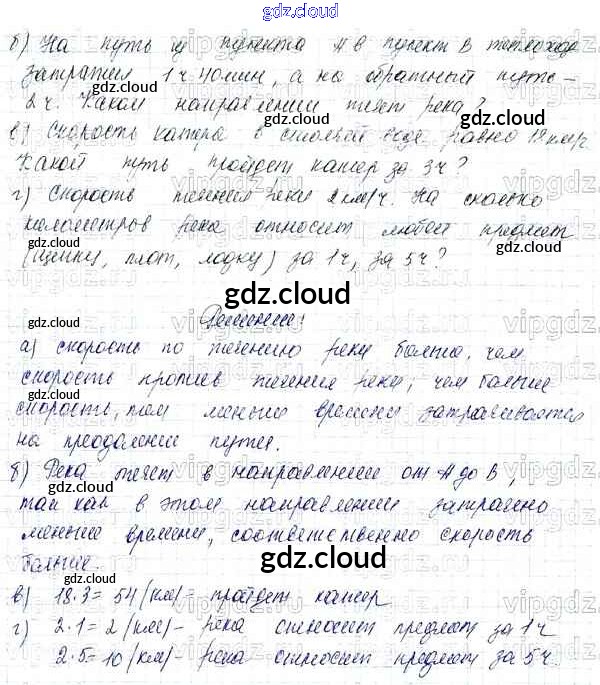 gdz.cloud
б) На путь из пункта А в пункт В теплоход
затратил 1ч 40мин, а на обратный путь –
gdz.cloud
2ч. В каком направлении течет река?
в) Скорость катера в стоячей воде равна 18 км/ч
Какой путь пройдет катер за 3ч?
gdz.cloud
г) Скорость течения реки 2 км/ч. На сколько
километров река относит любой предмет
gdz.cloud
(щепку, плот, лодку) за 1ч, за 5ч?
gdz.cloud
gdz.cloud
Решение:
gdz.cloud
а) скорость по течению реки больше, чем
скорость против течения реки, чем больше
gdz.cloud
скорость, тем меньше времени затрачивается
на преодоление пути.
б) Река течет в направлении от А до В,
gdz.cloud
так как в этом направлении затрачено
меньше времени, соответственно скорость
gdz.cloud
больше.
gdz.cloud
в) 18·3=54 (км) – пройдет катер
г) 2·1=2 (км) – река относит предмет за 1ч
2·5=10 (км) – река относит предмет за 5ч.
gdz.cloud